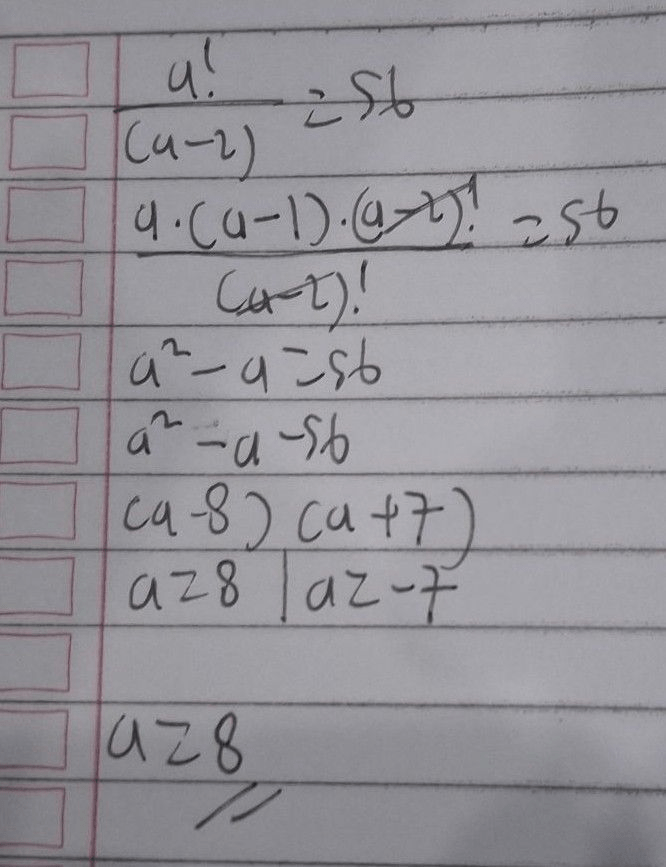 a!/(a-2) = 56
a·(a-1)·(a-2)!/(a-2)! = 56
a² - a = 56
a² - a - 56
(a-8) (a+7)
a = 8 | a = -7
a = 8